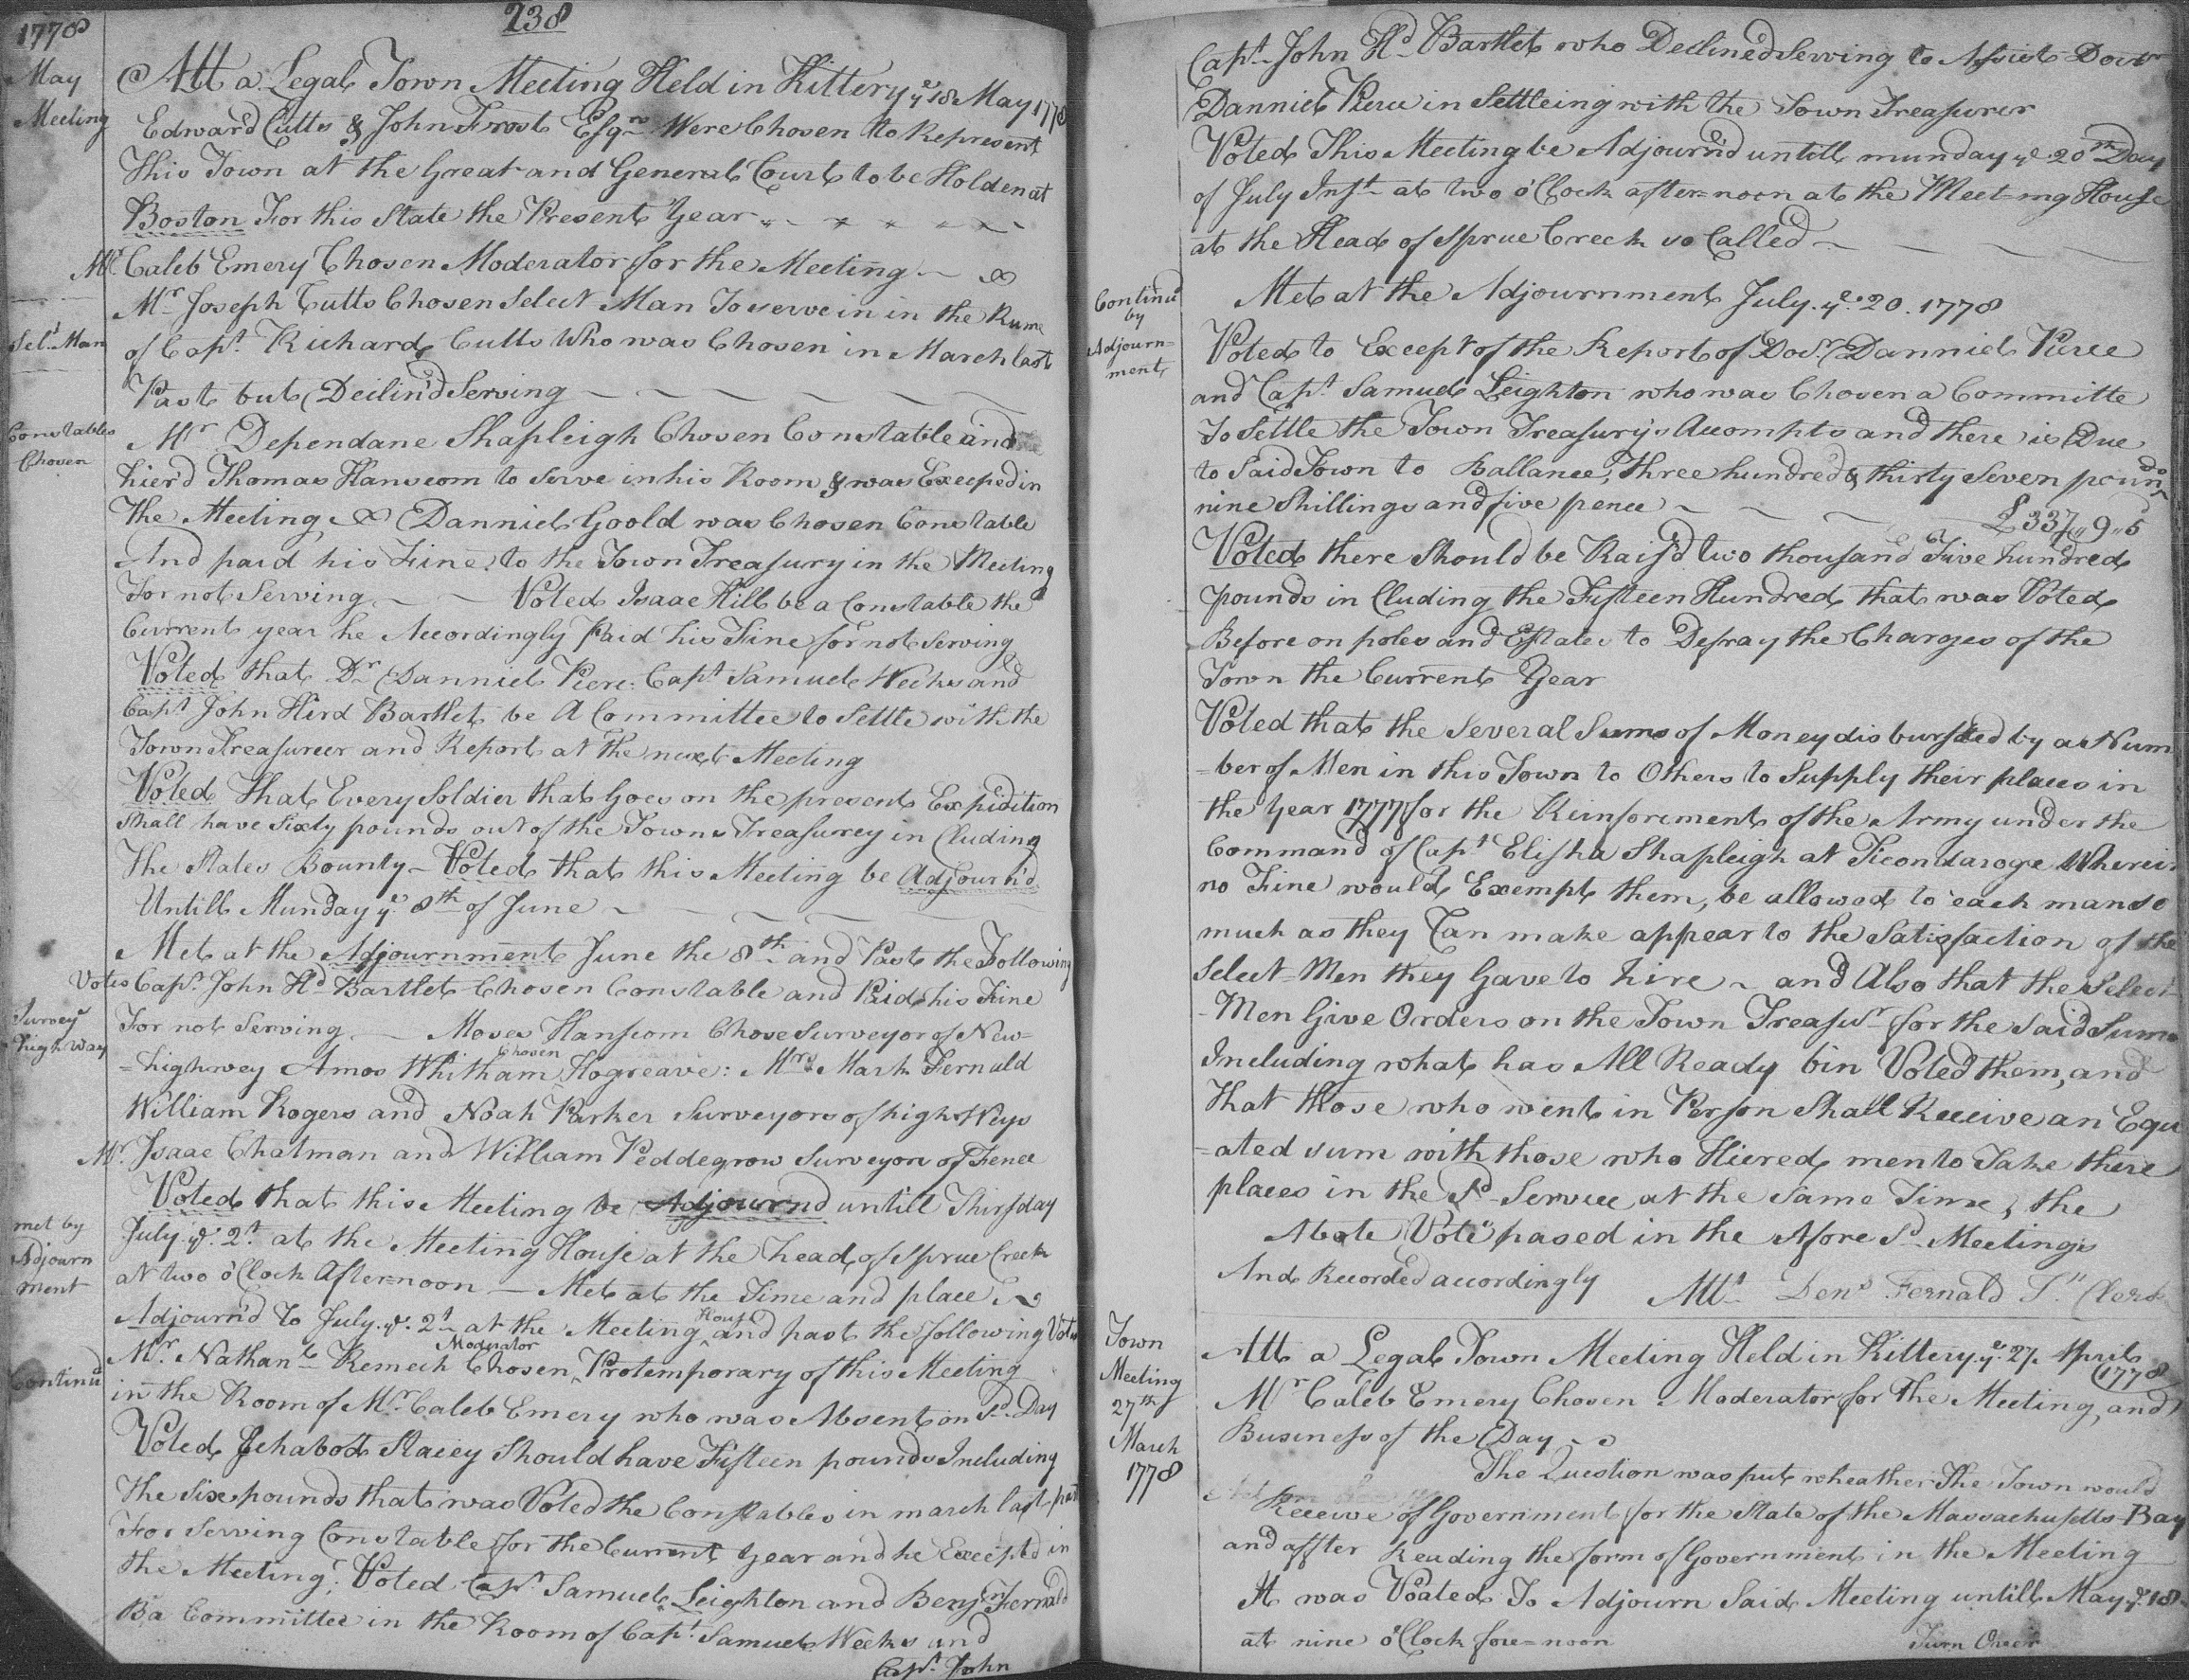 238
1778
May
Meeting
Att a Legal Town Meeting Held in Kittery ye 18 May 1778
Edward Cutts & John Frost Esqrs Were Chosen to Represent
This Town at the Great and General Court to be Holden at
Boston For this State the Present Year
Mr Caleb Emery Chosen Moderator for the Meeting
Selt Man
Mr Joseph Cutts Chosen Select Man To serve in in the Rume
of Capt Richard Cutts Who was Chosen in March last
Past but Declin'd Serving
Constables
Chosen
Mr Dependane Shapleigh Chosen Constable and
hier'd Thomas Hanscom to Serve in his Room & was Exceped in
The Meeting Danniel Goold was Chosen Constable
And paid his Fine to the Town Treasury in the Meeting
For not Serving Voted Isaac Hill be a Constable the
Current year he Accordingly Paid his Fine for not Serving
Voted that Dr Danniel Pierc Capt Samuel Weeks and
Capt John Hird Bartlet be A Committee to Settle with the
Town Treasureer and Report at the next Meeting
Voted That Every Soldier that Goes on the present Expidition
Shall have Sixty pounds out of the Towns Treasurey in Cluding
The States Bounty Voted that this Meeting be Adjourn'd
Untill Munday ye 8th of June
Met at the Adjournment June the 8th and Past the Following
Votes Capt John Hd Bartlet Chosen Constable and Paid his Fine
Surveyr
high way
For not Serving Moses Hanscom Chose Surveyor of New=
=highwey Amos Whitham Chosen Hogreave: Mrs Mark Fernald
William Rogers and Noah Parker Surveyors of high Weys
Mr Isaac Chatman and William Peddegrow Surveyors of Fence
Voted that this Meeting be Adjournd untill Thirsday
met by
Adjourn
ment
July ye 2d at the Meeting House at the head of Spruc Creek
at two o'Clock After=noon Met at the Time and place
Adjourn'd To July ye 2d at the Meeting House and past the following Votes
Continud
Mr Nathanl Remech Chosen Moderator Protemporary of this Meeting
in the Room of Mr Caleb Emery who was Absent on Sd Day
Voted Jchabod Stacey Should have Fifteen pounds Including
The Six pounds that was Voted the Constables in march last past
For Serving Constable for the Current Year and he Excepted in
the Meeting; Voted Capt Samuel Leighton and Benjn Fernald
Ba Committee in the Room of Capt Samuel Weeks and
Capt John
Capt John Hd Bartlet who Declined Serving to Assist Doctr
Danniel Pierce in Settleing with the Town Treasurer
Voted This Meeting be Adjourn'd untill munday ye 20th Day
of July Inst at two o'Clock after=noon at the Meet-ing House
at the Head of Spruc Creek so Called
Continud
by
Adjourn=
ment
Met at the Adjournment July ye 20. 1778
Voted to Except of the Report of Docr Danniel Pierce
and Capt Samuel Leighton who was Chosen a Committe
To Settle the Town Treasury's Accompts and there is Due
to Said Town to Ballance, three hundred & thirty Seven pounds
nine Shillings and five pence £337,,9,,5
Voted there Should be Rais'd two thousand Five hundred
pounds in Cluding the Fifteen Hundred that was Voted
Before on poles and Estates to Defray the Charges of the
Town the Current Year
Voted that the Several Sums of Money disbursted by a Num
=ber of Men in this Town to Others to Supply their places in
the Year 1777 for the Reinforcment of the Army under the
Command of Capt Elisha Shapleigh at Ticondaroge Wherein
no Fine would Exempt them, be allowed to each man so
much as they Can make appear to the Satisfaction of the
Select=Men they Gave to hire and Also that the Select
-Men Give Orders on the Town Treasur for the Said Sums
Including what has All Ready bin Voted them, and
That those who went in Person Shall Receive an Equ
=ated sum with those who Hiered men to Take there
places in the Sd Service at the Same Time, the
Above Vote pased in the Afore Sd Meetings
And Recorded accordingly Attt Denn Fernald Tn Clerk
Town
Meeting
27th
March
1778
Att a Legal Town Meeting Held in Kittery ye 27 April
1778
Mr Caleb Emery Chosen Moderator for The Meeting, and
Business of the Day
The Question was put wheather The Town would
Receive of Government for the State of the Massachusetts Bay
and affter Reading the form of Government in the Meeting
It was Voated To Adjourn Said Meeting untill May ye 18
at nine o'Clock fore=noon
Turn Over